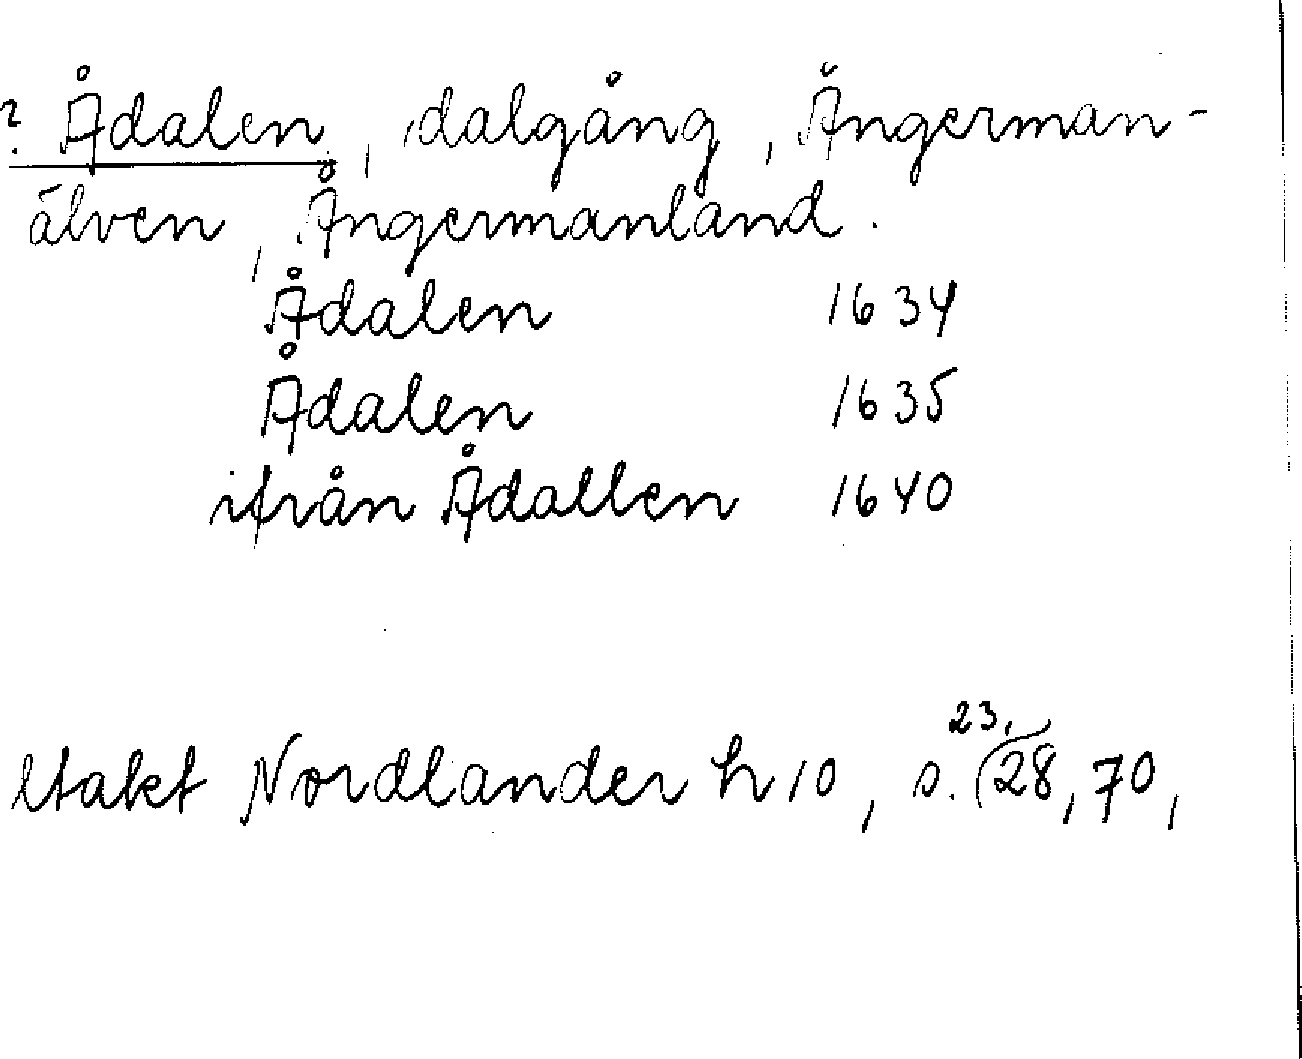 ? Ådalen, dalgång, Ångerman-
älven, Ångermanland.
Ådalen 1634
Ådalen 1635
ifrån Ådallen 1640
Utakt Nordlander h 10, s. 23, 28, 70,